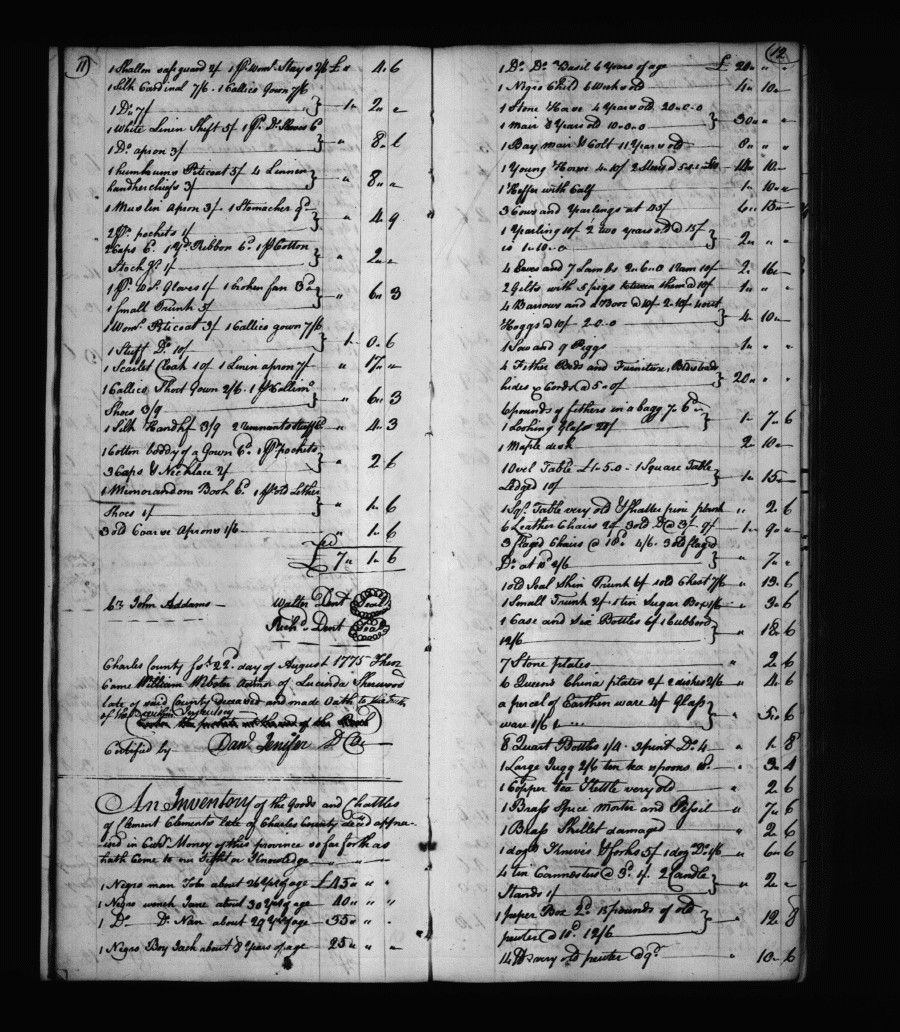 11
1 Shallon safeguard 2/ 1 Pr. Wom.s Stays 2/6 £ " 4 " 6
1 Silk Cardinal 7/6 - 1 Callico Gown 7/6
1 Do. 7/ } 1 " 2 " "
1 White Linin Shift 5/ 1 Pr. Do. Sleeves 6d
1 Do. apron 3/ } " 8 "
1 humhums Peticoat 5/ 4 Linnen
handkerchiefs 3/ } " 8 " "
1 Muslin apron 3/ - 1 Stomacher 9d
2 Pr. pockets 1/ } " 4 " 9
Caps 6. 1 Yd. Ribbon 6d. 1 Pr Cotton
Stock gs. 1/ } " 2 " "
1 Pr. Wo. Gloves 1/ 1 broken fan 3d
1 Small Trunk 5/ } " 6 " 3
1 Wom.s Peticoat 3/ 1 Callico gown 7/6
1 Stuff Do. 10/ } 1 " 0 " 6
1 Scarlet Cloak 10/ 1 Linin apron 7/ " 17 " "
1 Callico Short Gown 2/6 - 1 Pr
Shoes 3/9 } " 6 " 3
1 Silk Handkf. 3/9 2 remnants stuff 6d " 4 " 3
1 Cotton boddy of a Gown 6d. 1 Pr. pockets
3 Caps & Necklace 2/ } " 2 " 6
1 Memorandom Book 6d. 1 Pr. old Lether
Shoes 1/ } " 1 " 6
3 old Coarse Aprons 1/6 " 1 " 6
£ 7 " 1 " 6
Cr. John Addams Walter Dent Seal
Richd. Dent Seal
Charles County Sst. 22d. day of August 1775 Then
Came William Webster admr. of Lucinda Sherwood
late of said County deceased and made Oath to
of the within Inventory
Certified by Danl. Jenifer D Cy
An Inventory of the Goods and Chattles
of Clement Clements late of Charles County decd. appra-
ised in Curt. Money of this province so far forth as
hath Come to our Sight or Knowledge
1 Negro man Tob about 26 Yrs of age £ 45 " " "
1 Negro wench Jane about 30 Yrs of age 40 " " "
1 Do. Do. Nan about 29 Yrs of age 35 " " "
1 Negro Boy Jack about 8 Years of age 25 " " "
12
1 Do. Do. Basil 6 Years of age £ 20 " " "
1 Negro Child 6 Weeks old 4 " 10 "
1 Stone Horse 4 Years old 20 - 0 - 0
1 Mair 8 Years old 10 - 0 - 0 } 30 " " "
1 Bay Mair & Colt 11 Years old 8 " " "
1 Young Horse 4 - 10/ 2 14 " 10 "
1 Heffer with Calf 1 " 10 "
3 Cows and Yearlings at 45/ 6 " 15 "
1 Yearling 10/ 2 two years old @ 15/
is 1 - 10 - 0 } 2 " " "
4 Ewes and 7 Lambs 2 - 6 - 0 1 Ram 10/ 2 " 16 "
2 Gilts with 5 pigs between them @ 10/ 1 " " "
4 Barrows and 1 Boor @ 10/ 2 - 10/ 4
Hoggs @ 10/ - 2 - 0 - 0 } 4 " 10 "
1 Sow and 9 Piggs 1 " " "
4 Fether Beds and Furniture, Bedsteads
hides & Cords @ 5 - 0/ } 20 " " "
6 pounds of fethers in a bagg 7 - 6d
1 Looking Glass 20/ } 1 " 7 " 6
1 Maple desk 2 " 10 "
1 Ovel Table £1 - 5 - 0 - 1 Square Table
Ledged 10/ } 1 " 15 "
1 Sqr. Table very old & Shatter 2 " 6
6 Leather Chairs 2/ 3 old Do. @ 3/ - 9/ 1 " 9 "
3 flaged Chairs @ 18d. 4/6 - 3 old flaged
Do. at 10d. 2/6 } " 7 "
1 old Seal Skin Trunk 6/ 1 old Chest 7/6 " 13 " 6
1 Small Trunk 2/ 1 tin Sugar Box 1/6 " 3 " 6
1 Case and Six Bottles 6/ 1 Cubbord
12/6 } " 18 " 6
7 Stone plates " 2 " 6
6 Queen's China plates 2/ 2 dishes 2/6 " 4 " 6
a parcel of Earthen ware 4/ Glass
ware 1/6 } " 5 " 6
8 Quart Bottles 1/4 - 3 pint Do. 4 " 1 " 8
1 Large Jugg 2/6 ten tea spoons " 3 " 4
1 Copper tea Kettle very old " 2 " 6
1 Brass Spice Morter and Pessil " 7 " 6
1 Brass Skillet damaged " 2 " 6
1 dozn. Knives & forks 5/ 1 dozn. Do. 1/6 " 6 " 6
4 tin Cannesters @ 3d. 1/. 2 Candle
Stands 1/ } " 2 "
1 peper Box 2d. 15 pounds of old
pewter @ 10d. 12/6 } " 12 " 8
14 lb very old pewter @ 9d. " 10 " 6